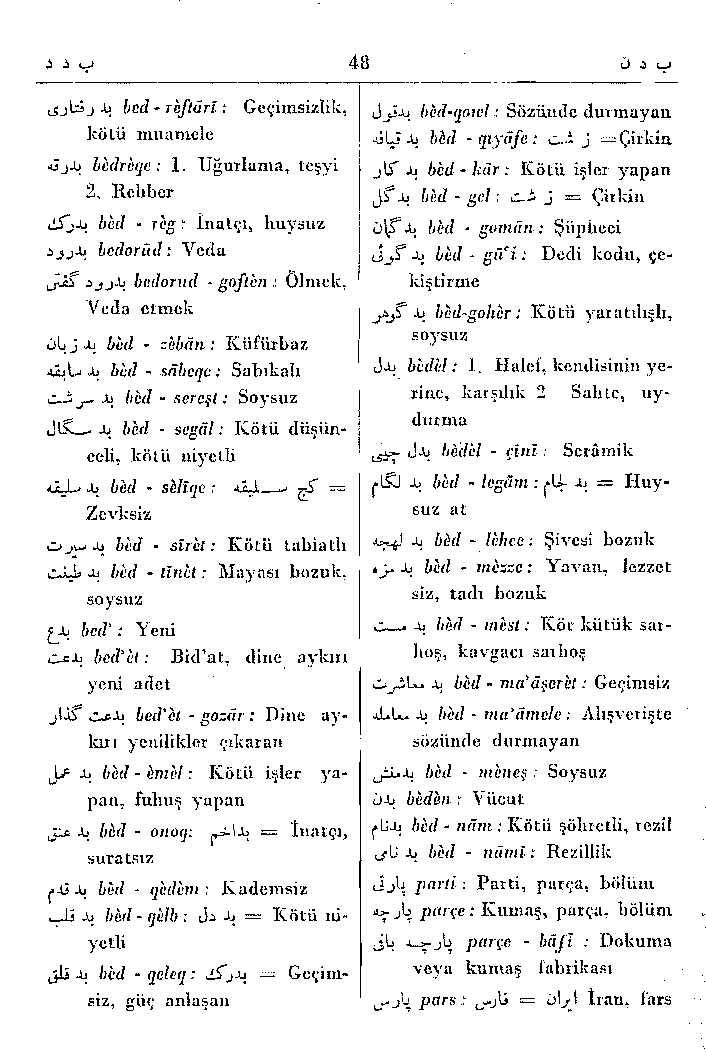 ب د د
48
ب د ن
بد رفتاری bed - rèftārī : Geçimsizlik,
kötü muamele
بدرقه bèdrèqe : 1. Uğurlama, teşyi
2. Rehber
بدرگ bèd - règ : İnatçı, huysuz
بدرود bedorūd : Veda
بدرود گفتن bedorud - goftèn : Ölmek,
Veda etmek
بد زبان bèd - zèbān : Küfürbaz
بد سابقه bèd - sābeqe : Sabıkalı
بد سرشت bèd - sereşt : Soysuz
بد سگال bèd - segāl : Kötü düşün-
celi, kötü niyetli
بد سلیقه bèd - sèlīqe : کج سلیقه =
Zevksiz
بد سیرت bèd - sīrèt : Kötü tabiatlı
بد طینت bèd - tīnèt : Mayası bozuk,
soysuz
بدع bed' : Yeni
بدعت bed'èt : Bid'at, dine aykırı
yeni adet
بدعت گذار bed'èt - gozār : Dine ay-
kırı yenilikler çıkaran
بد عمل bèd - èmèl : Kötü işler ya-
pan, fuhuş yapan
بد عنق bèd - onoq : بداخم = İnatçı,
suratsız
بد قدم bèd - qèdèm : Kademsiz
بد قلب bèd - qèlb : بد دل = Kötü ni-
yetli
بد قلق bèd - qeleq : بدرگ = Geçim-
siz, güç anlaşan
بدقول bèd-qowl : Sözünde durmayan
بد قیافه bèd - qıyāfe : ز شت = Çirkin
بد کار bèd - kār : Kötü işler yapan
بد گل bèd - gel : ز شت = Çirkin
بد گمان bèd - gomān : Şüpheci
بد گوئی bèd - gū'i : Dedi kodu, çe-
kiştirme
بد گوهر bèd-gohèr : Kötü yaratılışlı,
soysuz
بدل bèdèl : 1. Halef, kendisinin ye-
rine, karşılık 2 Sahte, uy-
durma
بدل چینی bèdèl - çīnī : Serâmik
بد لگام bèd - legām : بد لجام = Huy-
suz at
بد لهجه bèd - lèhce : Şivesi bozuk
بد مزه bèd - mèzze : Yavan, lezzet
siz, tadı bozuk
بد مست bèd - mèst : Kör kütük sar-
hoş, kavgacı sarhoş
بد معاشرت bèd - ma'āşerèt : Geçimsiz
بد معامله bèd - ma'āmele : Alışverişte
sözünde durmayan
بد منش bèd - mèneş : Soysuz
بدن bèdèn : Vücut
بدنام bèd - nām : Kötü şöhretli, rezil
بد نامی bèd - nāmī : Rezillik
پارتی parti : Parti, parça, bölüm
پارچه parçe : Kumaş, parça, bölüm
پارچه بافی parçe - bāfī : Dokuma
veya kumaş fabrikası
پارس pars : ایران = فارس İran, fars